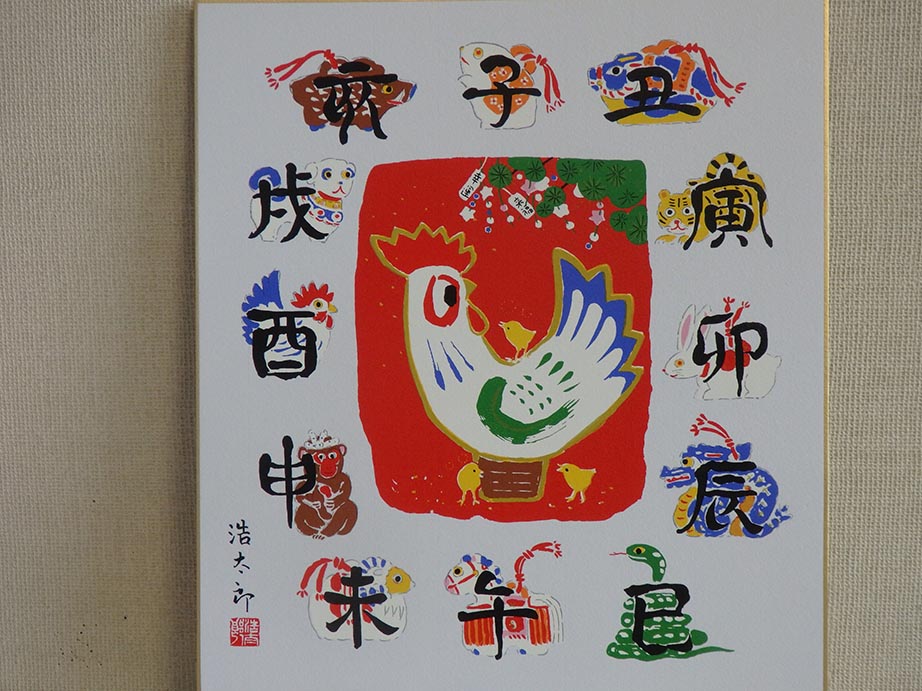 亥
子
丑
寅
卯
辰
巳
午
未
申
酉
戌
浩太郎